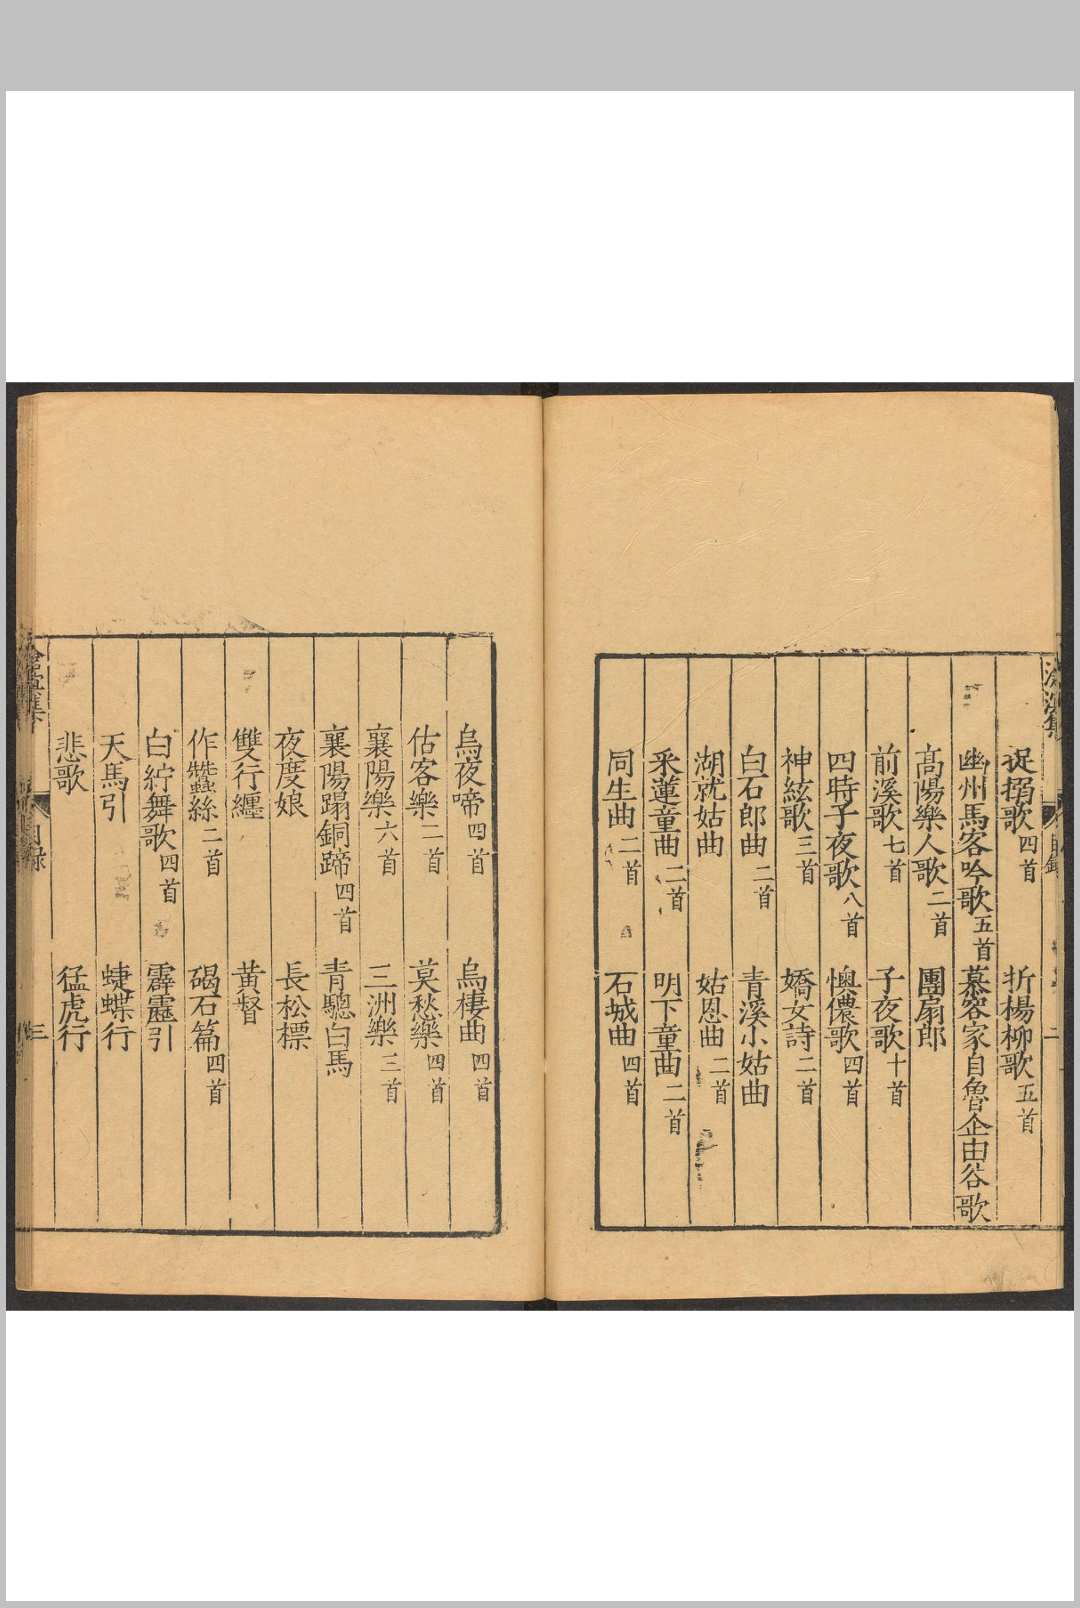 捉搦歌四首 折楊柳歌五首
幽州馬客吟歌五首 慕容家自魯企由谷歌
髙陽樂人歌二首 團扇郎
前溪歌七首 子夜歌十首
四時子夜歌八首 懊儂歌四首
神絃歌三首 嬌女詩二首
白石郎曲二首 青溪小姑曲
湖就姑曲 姑恩曲二首
采蓮童曲二首 明下童曲二首
同生曲二首 石城曲四首
烏夜啼四首 烏棲曲四首
估客樂二首 莫愁樂四首
襄陽樂六首 三洲樂三首
襄陽蹋銅蹄四首 青驄白馬
夜度娘 長松標
雙行纏 黃督
作蠶絲二首 碣石篇四首
白紵舞歌四首 霹靂引
天馬引 蜨蝶行
悲歌 猛虎行
目録 三